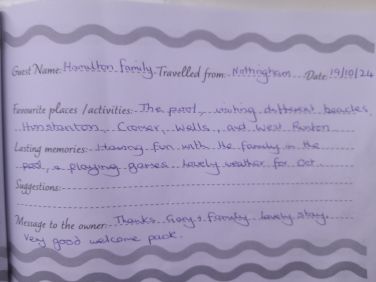 Guest Name: Hamilton Family Travelled from: Nottingham Date: 19/10/24
Favourite places / activities: The pool, visiting different beaches
Hunstanton, Cromer, Wells, and West Runton
Lasting memories: Having fun with the family in the
pool, & playing games. Lovely weather for Oct.
Suggestions:
Message to the owner: Thanks Gary & family lovely stay.
Very good welcome pack.